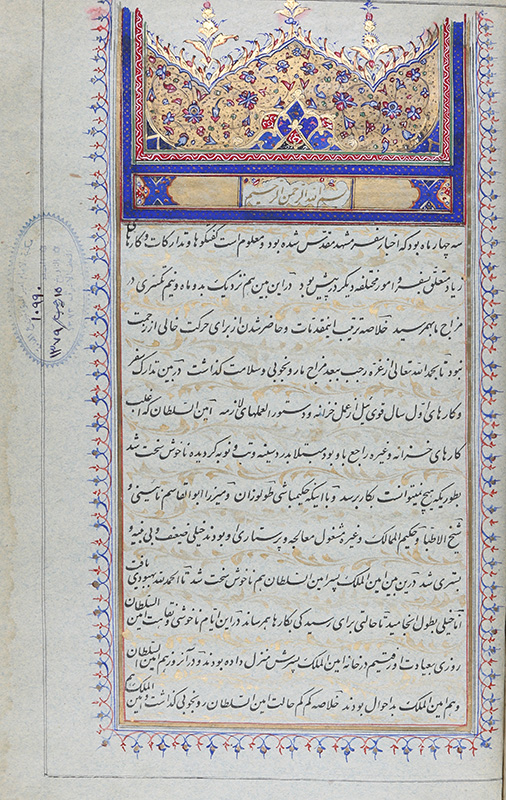 بسم الله الرحمن الرحیم
سه چهار ماه بود که اخبار سفر مشهد مقدس شده بود و معلوم است گفتگوها و تدارکات و کارهای
زیاد متعلق بسفر و امور مختلفه دیگر در پیش بود در این بین هم نزدیک بدو ماه و نیم تکسری در
مزاج ما بهم رسید خلاصه ترتیب این مقدمات و حاضر شدن از برای حرکت خالی از زحمت
نبود تا بحمد الله تعالی از غره رجب ببعد مزاج ما رو بخوبی و سلامت گذاشت در بین تدارک سفر
و کارهای اول سال قوی ئیل از عمل خزانه و دستور العملهای لازمه امین السلطان که اغلب
کارهای خزانه و غیره راجع باو بود مبتلا بدرد سینه و تب و نوبه گردیده ناخوش سخت شد
بطوریکه هیچ نمیتوانست بکار برسد و با اینکه حکیمباشی طولوزان و میرزا ابوالقاسم نائینی و
شیخ الاطبا و حکیم الممالک و غیره مشغول معالجه و پرستاری او بودند خیلی ضعف و بی بنیه و
بستری شد در این بین امین الملک پسر امین السلطان هم ناخوش سخت شد تا الحمد لله بهبودی یافت
اما خیلی بطول انجامید تا حالتی برای رسیدگی بکارها بهم رساند در این ایام ناخوشی و نقاهت امین السلطان
روزی بعیادت او رفتیم در خانه امین الملک پسرش منزل داده بودند در آنروز هم امین السلطان
و هم امین الملک بداحوال بودند خلاصه کم کم حالت امین السلطان رو بخوبی گذاشت و امین الملک هم
۱۰۹۹۰